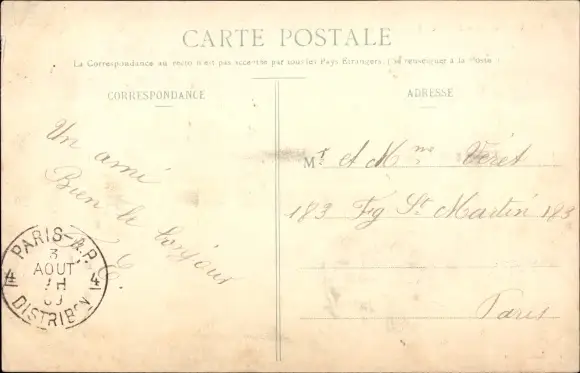 CARTE POSTALE
La Correspondance au recto n'est pas acceptée par tous les Pays Etrangers. (Se renseigner à la Poste)
CORRESPONDANCE
ADRESSE
Un ami
Bien le bonjour
C.
Mr et Mme Véret
183 Fg St Martin 183
Paris
PARIS
3
AOUT
7H
4 4
DISTRIBON